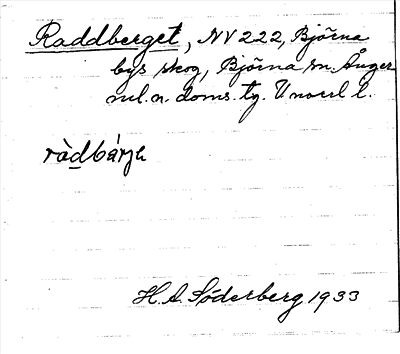 Raddberget, NV 222, Björna
bys skog, Björna sn. Ånger
ml. n. doms. tg. Unoul l.
ràdbárjə
H. A. Söderberg 1933